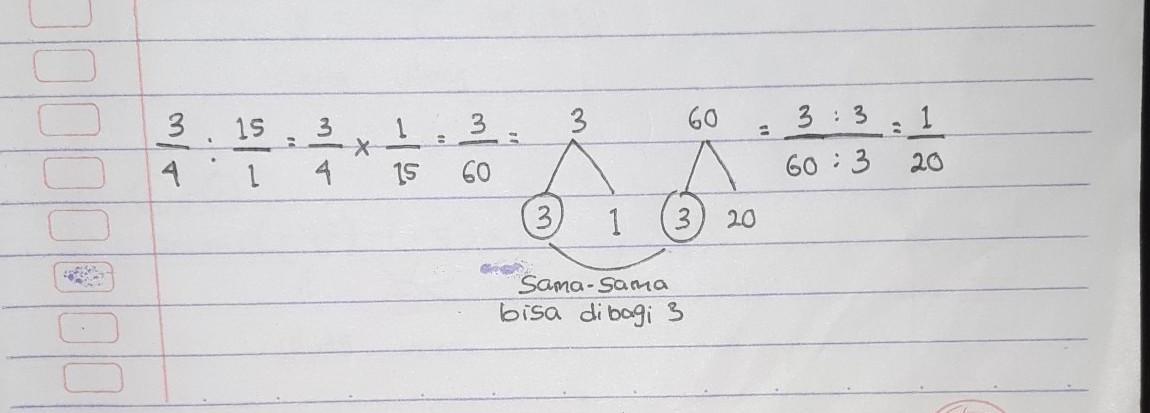 3/4 : 15/1 = 3/4 × 1/15 = 3/60 = 3 60 = 3 : 3/60 : 3 = 1/20
3 1 3 20
Sama-sama
bisa dibagi 3